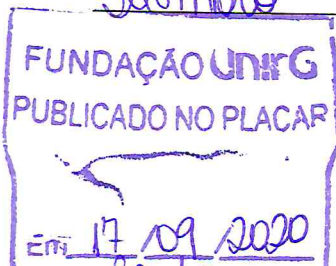 FUNDAÇÃO UnirG
PUBLICADO NO PLACAR
Em 17 09 2020